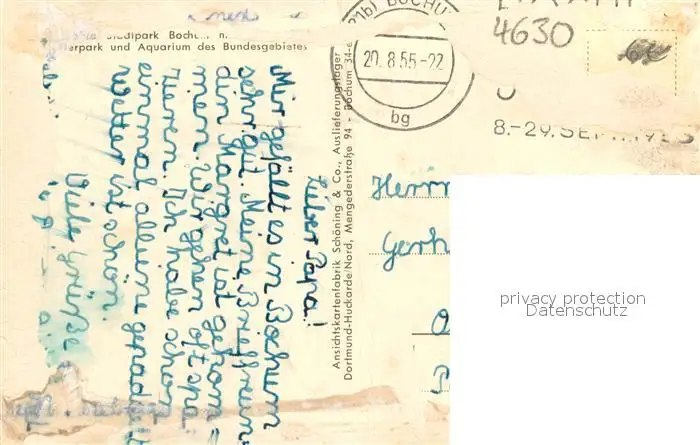 Stadtpark Bochum
erpark und Aquarium des Bundesgebietes
BOCHUM
20.8.55-22
bg
4630
8.-29. SEPT. 1955
Lieber Papa!
Mir gefällt es in Bochum
sehr gut. Meine Brieffreun-
din Margret ist gekom=
men. Wir gehen oft spa
zieren. Ich habe schon
einmal alleine geradelt
Wetter ist schön.
Viele Grüße
Ansichtskartenfabrik Schöning & Co., Auslieferungslager
Dortmund-Huckarde/Nord, Mengederstraße 94 - Bochum 34-6
Herrn
Gerh
privacy protection
Datenschutz